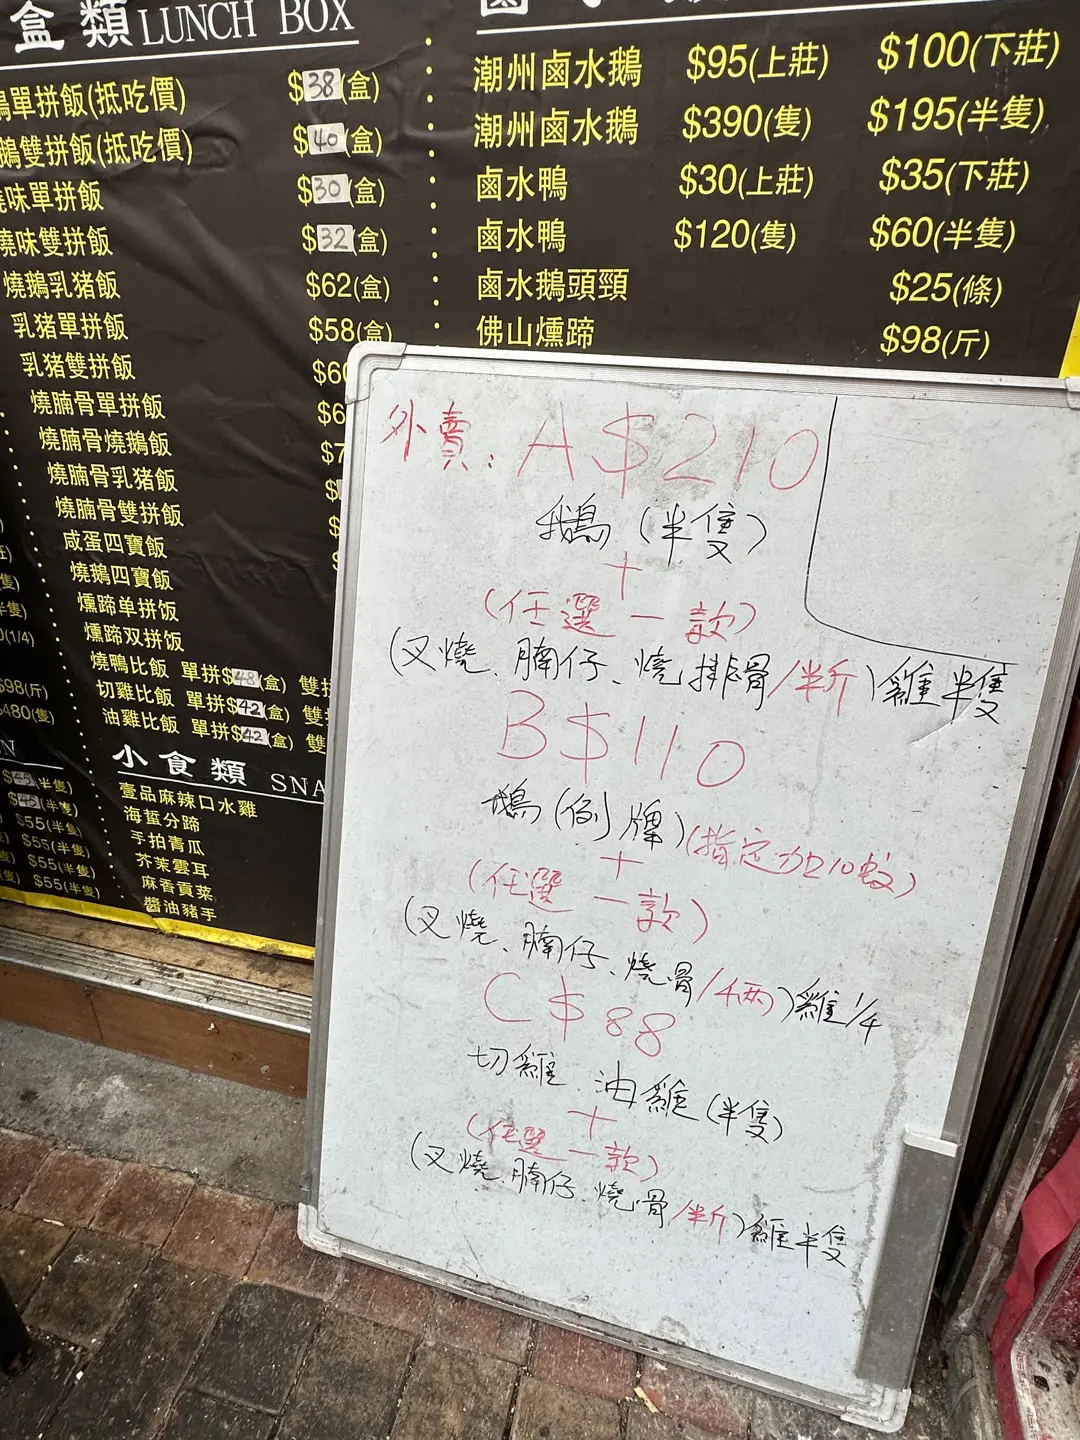 盒類 LUNCH BOX
單拼飯(抵吃價) $38(盒)
鵝雙拼飯(抵吃價) $40(盒)
燒味單拼飯 $30(盒)
燒味雙拼飯 $32(盒)
燒鵝乳猪飯 $62(盒)
乳猪單拼飯 $58(盒)
乳猪雙拼飯 $6
燒腩骨單拼飯 $6
燒腩骨燒鵝飯 $7
燒腩骨乳猪飯 $
燒腩骨雙拼飯 $
咸蛋四寶飯 $
燒鵝四寶飯
燻蹄单拼饭
燻蹄双拼饭
燒鴨比飯 單拼$48(盒) 雙拼
切雞比飯 單拼$42(盒) 雙
油雞比飯 單拼$42(盒) 雙
小食類 SNA
壹品麻辣口水雞
海蜇分蹄
手拍青瓜
芥茉雲耳
麻香貢菜
醬油豬手
(1/4)
$98(斤)
$480(隻)
$45(半隻)
$45(半隻)
$55(半隻)
$55(半隻)
$55(半隻)
$55(半隻)
潮州鹵水鵝 $95(上莊) $100(下莊)
潮州鹵水鵝 $390(隻) $195(半隻)
鹵水鴨 $30(上莊) $35(下莊)
鹵水鴨 $120(隻) $60(半隻)
鹵水鵝頭頸 $25(條)
佛山燻蹄 $98(斤)
外賣: A $210
鵝(半隻)
+
(任選一款)
(叉燒、腩仔、燒排骨/半斤)雞半隻
B $110
鵝(例牌)(指定加10蚊)
+
(任選一款)
(叉燒、腩仔、燒骨/4両)雞1/4
C $88
切雞、油雞(半隻)
+
(任選一款)
(叉燒、腩仔、燒骨/半斤)雞半隻